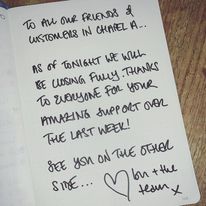 TO ALL OUR FRIENDS &
CUSTOMERS IN CHAPEL A...
AS OF TONIGHT WE WILL
BE CLOSING FULLY. THANKS
TO EVERYONE FOR YOUR
AMAZING SUPPORT OVER
THE LAST WEEK!
SEE YOU ON THE OTHER
SIDE... + the
team x